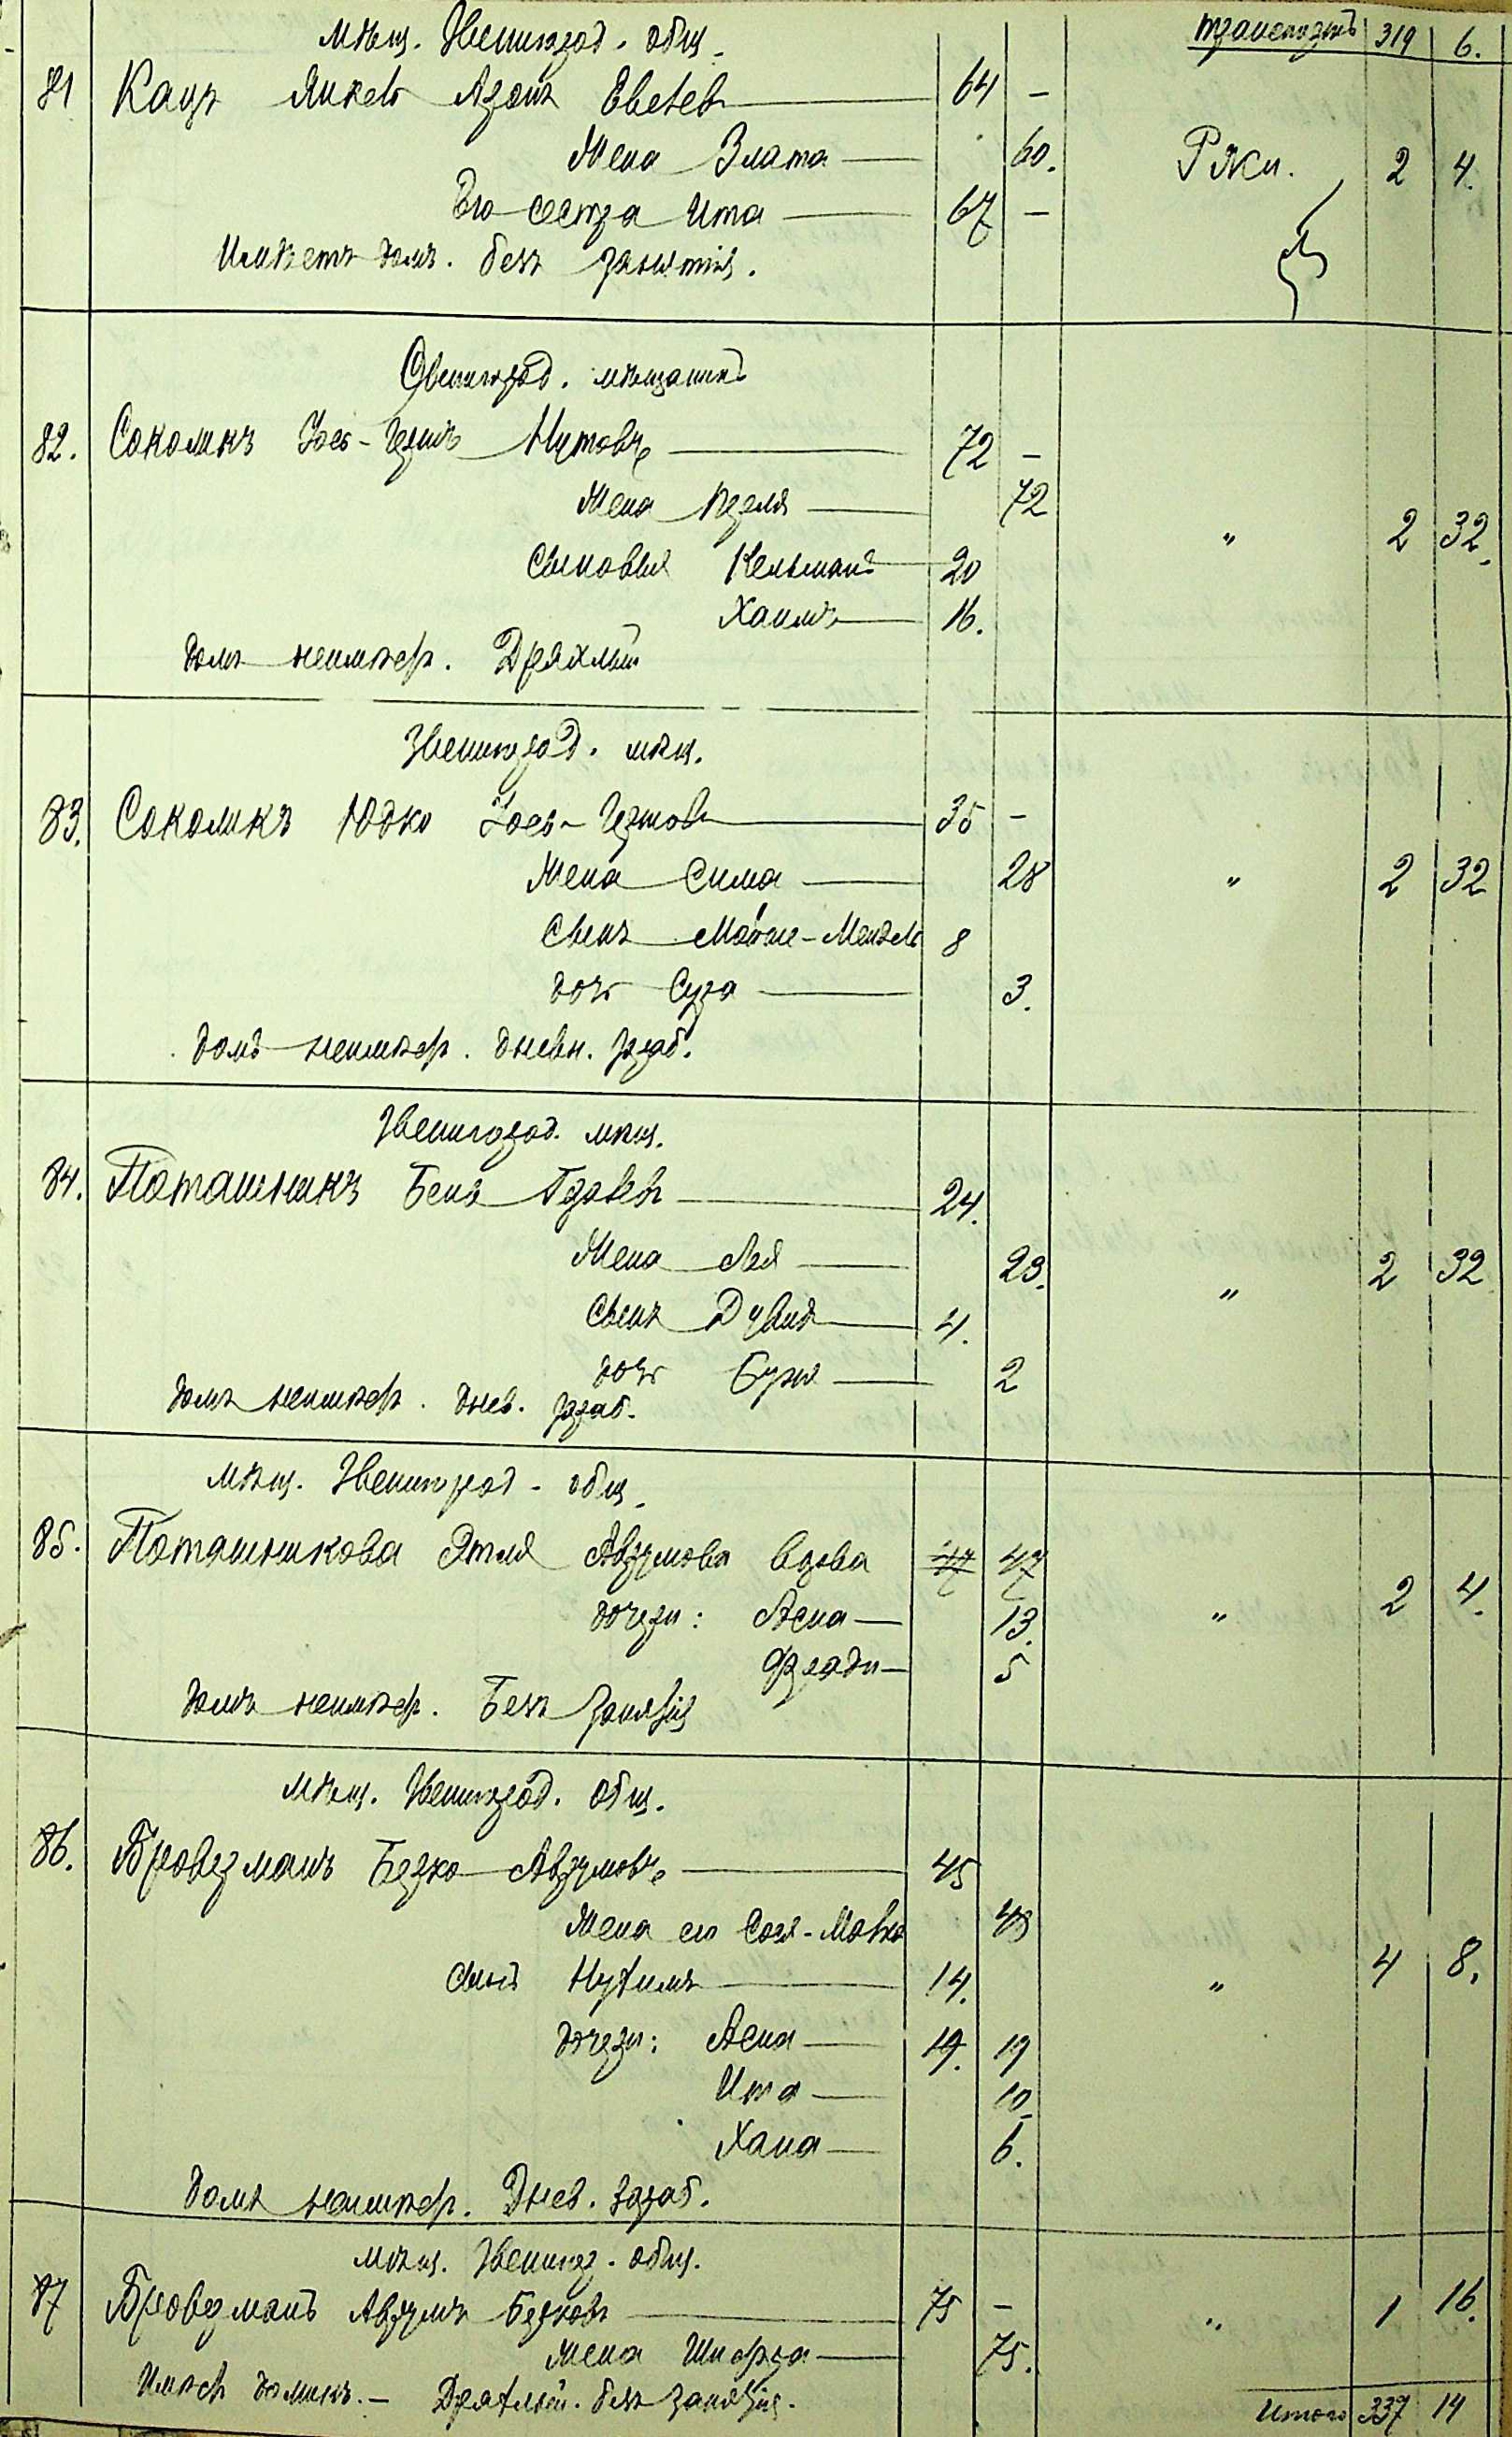 мѣщ. Звенигород. общ. транспортъ 319 6.
81 Кацъ Янкель Аронъ Евелев 64 -
Жена Злата 60. Ржи. 2 4.
Его сестра Ита 67 -
Имѣетъ домъ. безъ занятія.
Звенигород. мѣщанинъ
82. Соколикъ Іось-Гершъ Нутовъ 72 -
Жена 72 " 2 32.
Сыновья Кельманъ 20
Хаимъ 16.
домъ неимѣетъ. Дряхлый
Звенигород. мѣщ.
83. Соколикъ Юдко Іось-Гершов 35 -
Жена Сима 28 " 2 32
Сынъ Мошко-Мендель 8
дочь Сура 3.
домъ неимѣет. дневн. зараб.
Звенигород. мѣщ.
84. Поташникъ Беня 24.
Жена Лея 23. " 2 32
Сынъ Дувидъ 4.
дочь 2
домъ неимѣет. днев. зараб.
мѣщ. Звенигород. общ.
85. Поташникова Этля Аврумова вдова 47 47
дочери: Асна 13. " 2 4.
Фради 5
домъ неимѣет. Безъ занятія
мѣщ. Звенигород. общ.
86. Броверманъ Берко Аврумовъ 45
Жена его 43
сынъ Нухимъ 14. " 4 8.
дочери: Асна 19. 19
Ита 10
Хана 6.
домъ неимѣет. Днев. зараб.
мѣщ. Звенигор. общ.
87 Броверманъ Аврумъ Берковъ 75 - " 1 16.
Жена Шифра 75.
Имѣет домикъ. - Дряхлый. безъ занятія. Итого 337 14